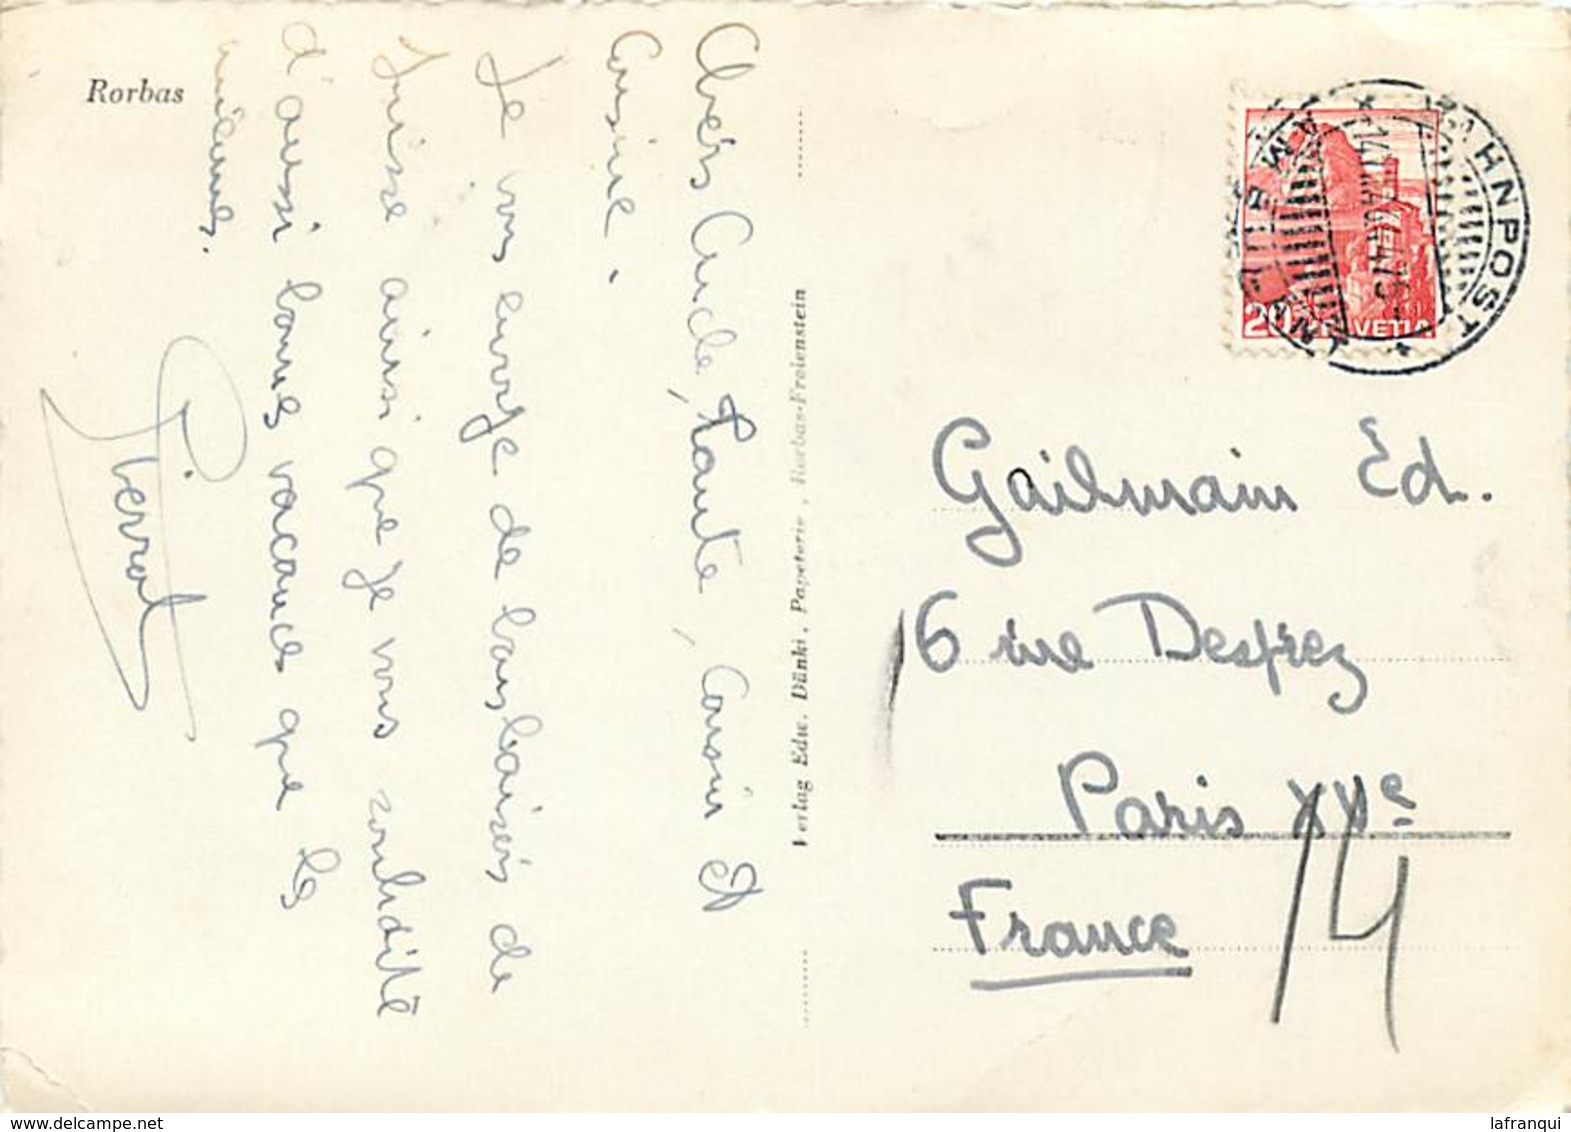 Rorbas
Chers Oncle, Tante, Cousin et
Cousine.
Je vous envoye de bons baisers de
Suisse ainsi que je vous souhaite
d'aussi bonnes vacances que les
miennes.
Pierrot
Verlag Edw. Dünki, Papeterie, Rorbas-Freienstein
BAHNPOST
AMBULANT
20 HELVETIA
Gailmain Ed.
6 rue Desprez
Paris XVe
14
France
lafranqui